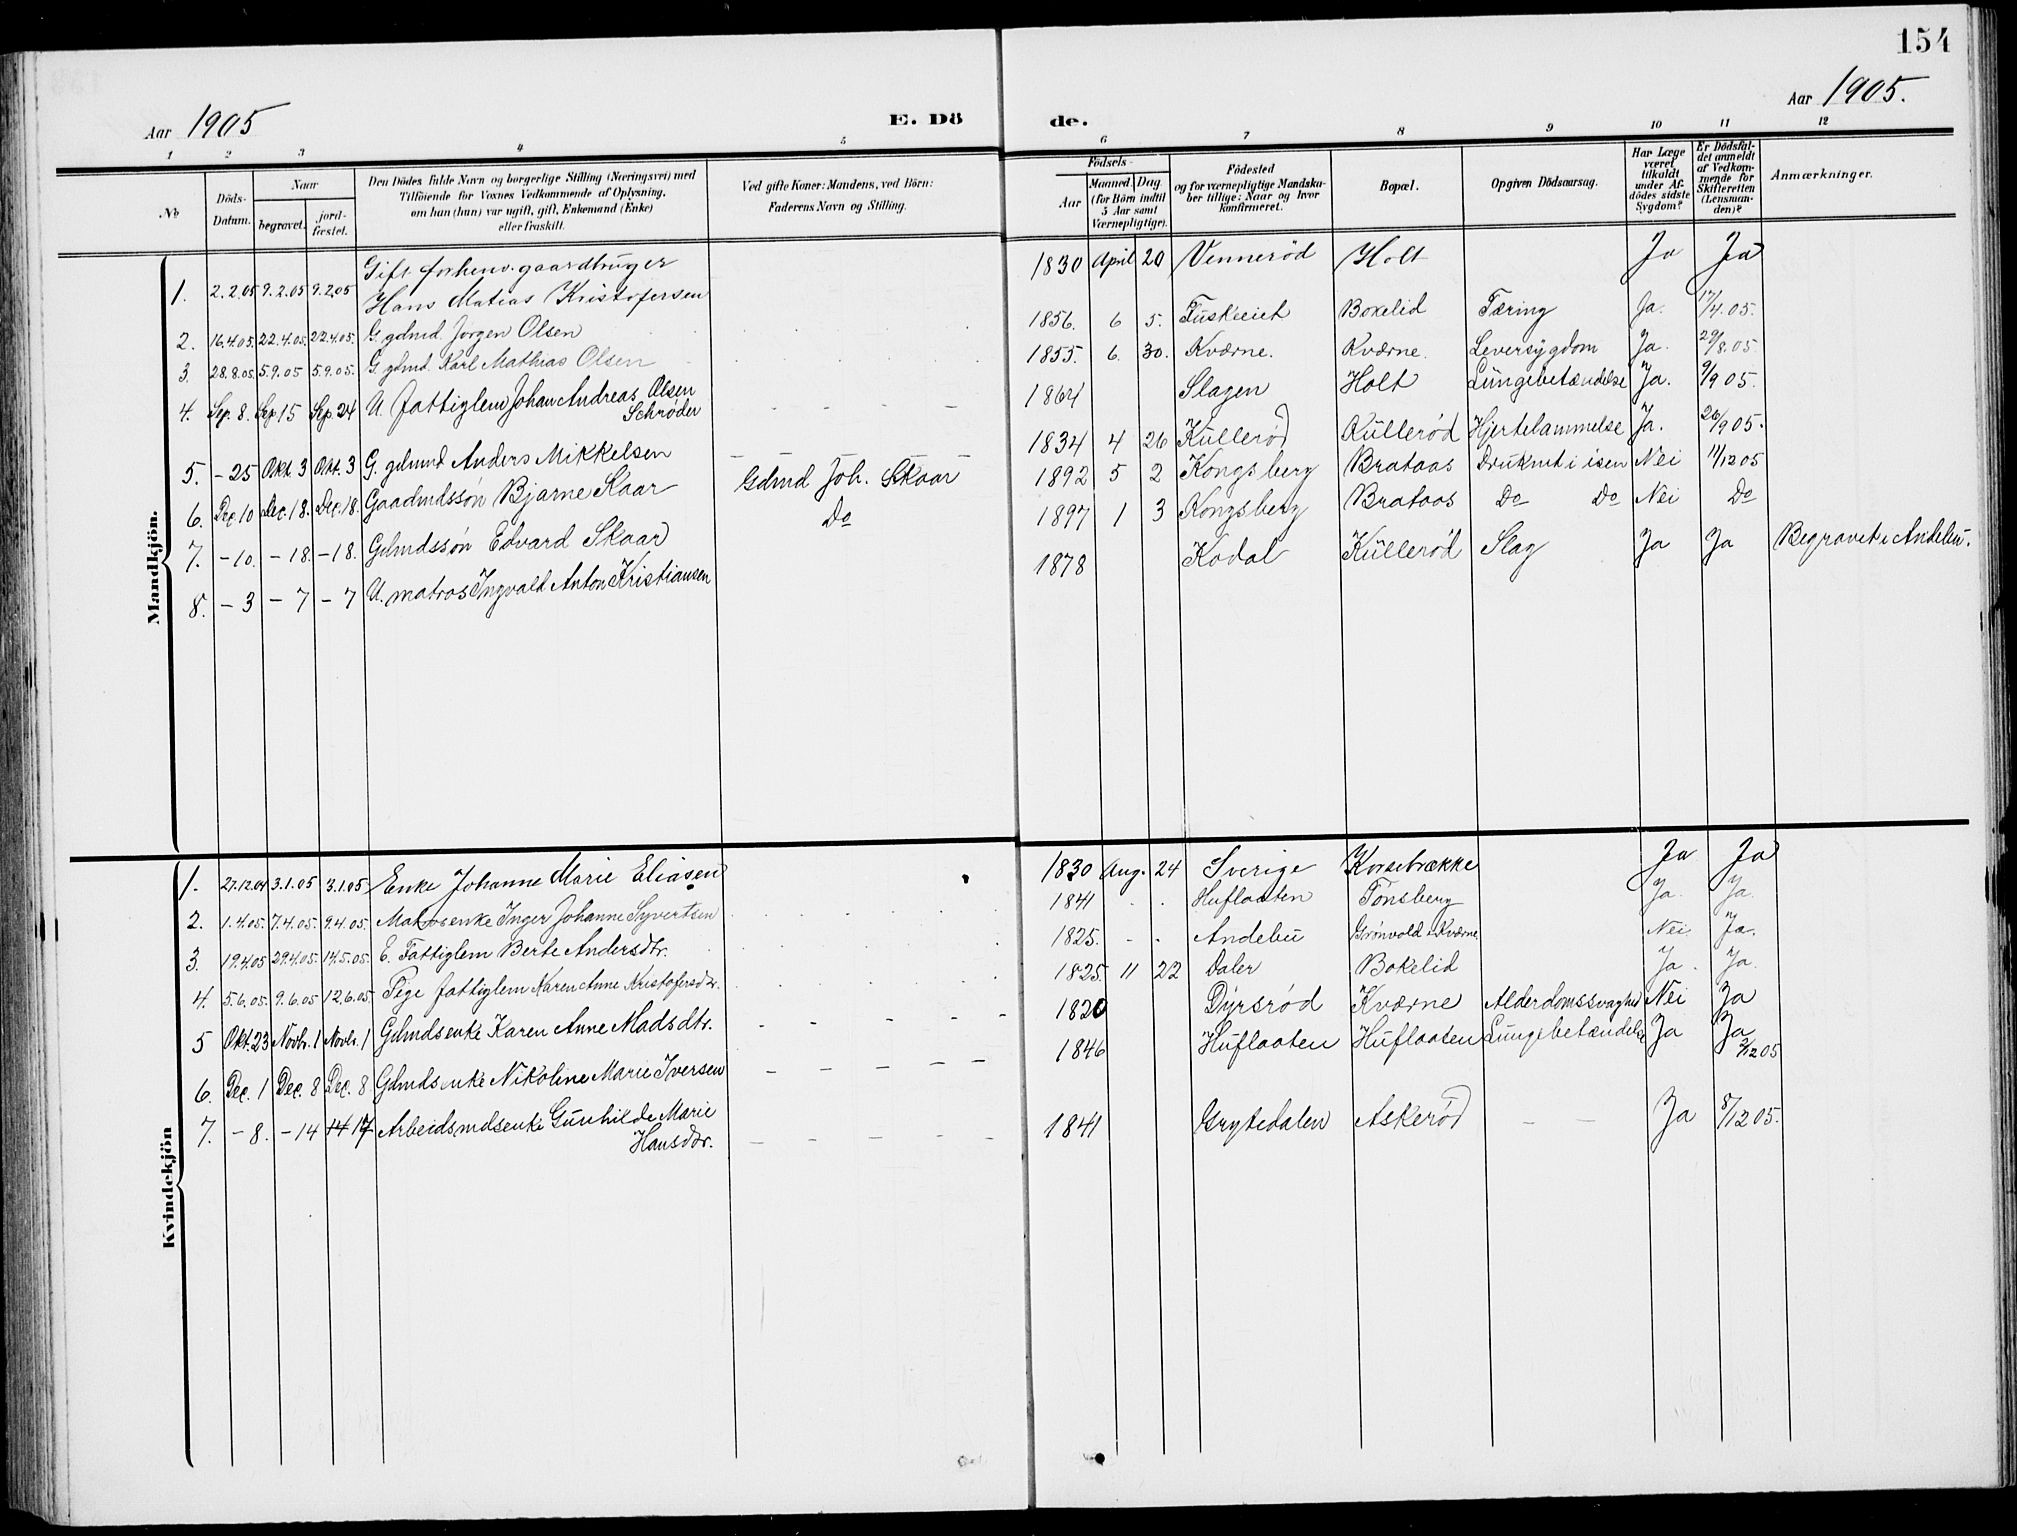 154
Aar 1905
E. Dö
de.
Aar 1905.
1 2 3 4 5 6 7 8 9 10 11 12
No
Döds-Datum.
Naar
begravet.
jord-fæstet.
Den Dödes fulde Navn og borgerlige Stilling (Næringsvei) med
Tilföiende for Voxnes Vedkommende af Oplysning,
om han (hun) var ugift, gift, Enkemand (Enke)
eller fraskilt.
Ved gifte Koner: Mandens, ved Börn:
Faderens Navn og Stilling.
Födsels-
Aar
Maaned. Dag
(for Börn indtil
5 Aar samt
Værnepligtige).
Födested
og for værnepligtige Mandska-
ber tillige: Naar og hvor
konfirmeret.
Bopæl.
Opgiven Dödsaarsag.
Har Læge
været
tilkaldt
under Af-
dödes sidste
Sygdom?
Er Dödsfal-
det anmeldt
af Vedkom-
mende for
Skifteretten
(Lensman-
den)?
Anmærkninger.
Mandkjön.
1. 2.2.05 9.2.05 9.2.05 Gift forhenv. gaardbruger
Hans Matias Kristofersen 1830 April 20 Vennerød Holt Ja Ja
2. 16.4.05. 22.4.05. 22.4.05. G. gdmd. Jørgen Olsen 1856. 6 5. Boxelid Tæring Ja. 17/4.05.
3. 28.8.05. 5.9.05 5.9.05. G. gdmd. Karl Mathias Olsen 1855. 6. 30. Kværne. Kværne. Leversygdom Ja. 29/8.05
4. Sep. 8. Sep 15 Sep. 24 U. fattiglem Johan Andreas Olsen
Schrøder - - - - 1864 Slagen Holt Lungebetændelse Ja. 9/9 05.
5. - 25 Okt. 3 Okt. 3 G. gdmnd Anders Mikkelsen - - - - 1834 4 26 Kullerød Kullerød Hjertelammelse Ja. 26/9 05.
6. Dec. 10 Dec. 18. Dec. 18. Gaardmdssøn Bjarne Skaar Gdmd Joh. Skaar 1892 5 2 Kongsberg Brataas Druknet i isen Nei 11/12 05
7. - 10. - 18. - 18. Gdmdssøn Edvard Skaar Do 1897 1 3 Kongsberg Brataas Do Do Nei Do
8. - 3 - 7 - 7 U. matros Ingvald Anton Kristiansen 1878 Kodal Kullerød Slag Ja Ja Begravet i Andebu.
Kvindekjön
1. 27.12.04 3.1.05 3.1.05 Enke Johanne Marie Eliasen 1830 Aug. 24 Sverige Korsebrække Ja Ja
2. 1.4.05. 7.4.05. 9.4.05. Matrosenke Inger Johanne Syvertsen 1841 . . Huflaaten Tønsberg Ja. Ja.
3. 19.4.05 29.4.05. 14.5.05. E. Fattiglem Berte Andersdtr. 1825. - . Andebu Grønvold u. Kværne. Nei Ja.
4. 5.6.05. 9.6.05 12.6.05. Pige fattiglem Karen Anne Kristofersdtr. 1825. 11 22 Daler Bokelid Ja. Ja.
5 Okt. 23 Novbr. 1 Novbr. 1 Gdmdsenke Karen Anne Madsdtr. - - - - - 1820 Dyrsrød Kværne Alderdomssvaghed Nei Ja
6. Dec. 1 Dec. 8 Dec. 8 Gdmdsenke Nikoline Marie Iversen - - - - - - 1846 Huflaaten Huflaaten Lungebetændelse Ja Ja
2/12 05
7. - 8. - 14 14 17 Arbeidsmdsenke Gunhilde Marie
Hansdtr. - - - - - - 1841 Grytedalen Askerød - - Ja 8/12 05.